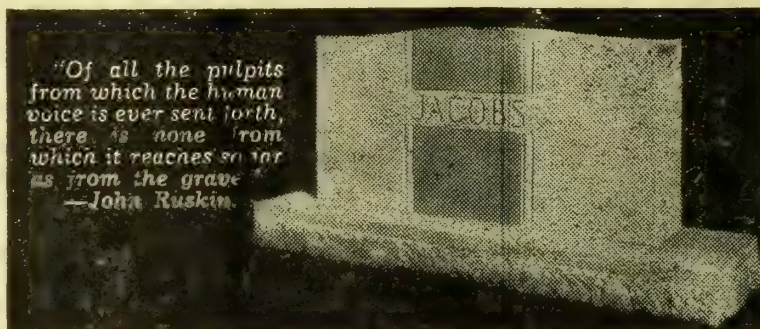 "Of all the pulpits
from which the human
voice is ever sent forth,
there is none from
which it reaches so far
as from the grave"
—John Ruskin.
JACOBS